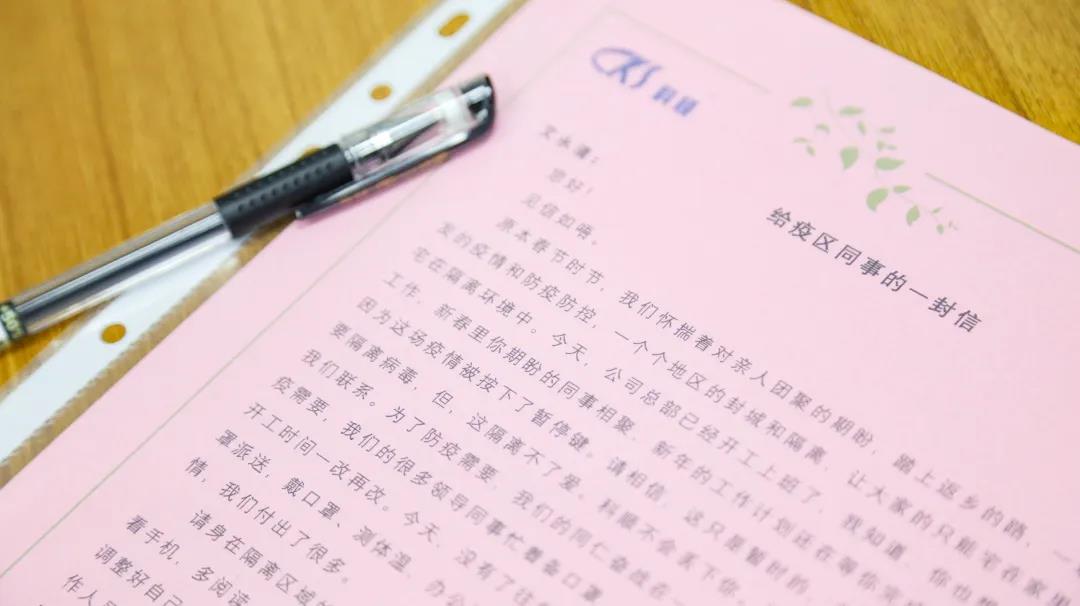 CKS 科顺
给疫区同事的一封信
您好！
见信如晤。
原本春节时节，我们怀揣着对亲人团聚的期盼，踏上返乡的路，一
发的疫情和防疫防控，一个个地区的封城和隔离，让大家的只能宅在家里
宅在隔离环境中。今天，公司总部已经开工上班了，我知道，你也想
工作，新春里你期盼的同事相聚、新年的工作计划还在等你完
因为这场疫情被按下了暂停键。请相信，这只是暂时的，
要隔离病毒，但，这隔离不了爱。科顺不会丢下你。
我们联系。为了防疫需要，我们的同仁奋战在一
疫需要，我们的很多领导同事忙着备口罩
开工时间一改再改。今天，没有了往
罩派送，戴口罩、测体温，办公
情，我们付出了很多。
请身在隔离区域的
看手机，多阅读
调整好自己
作人员